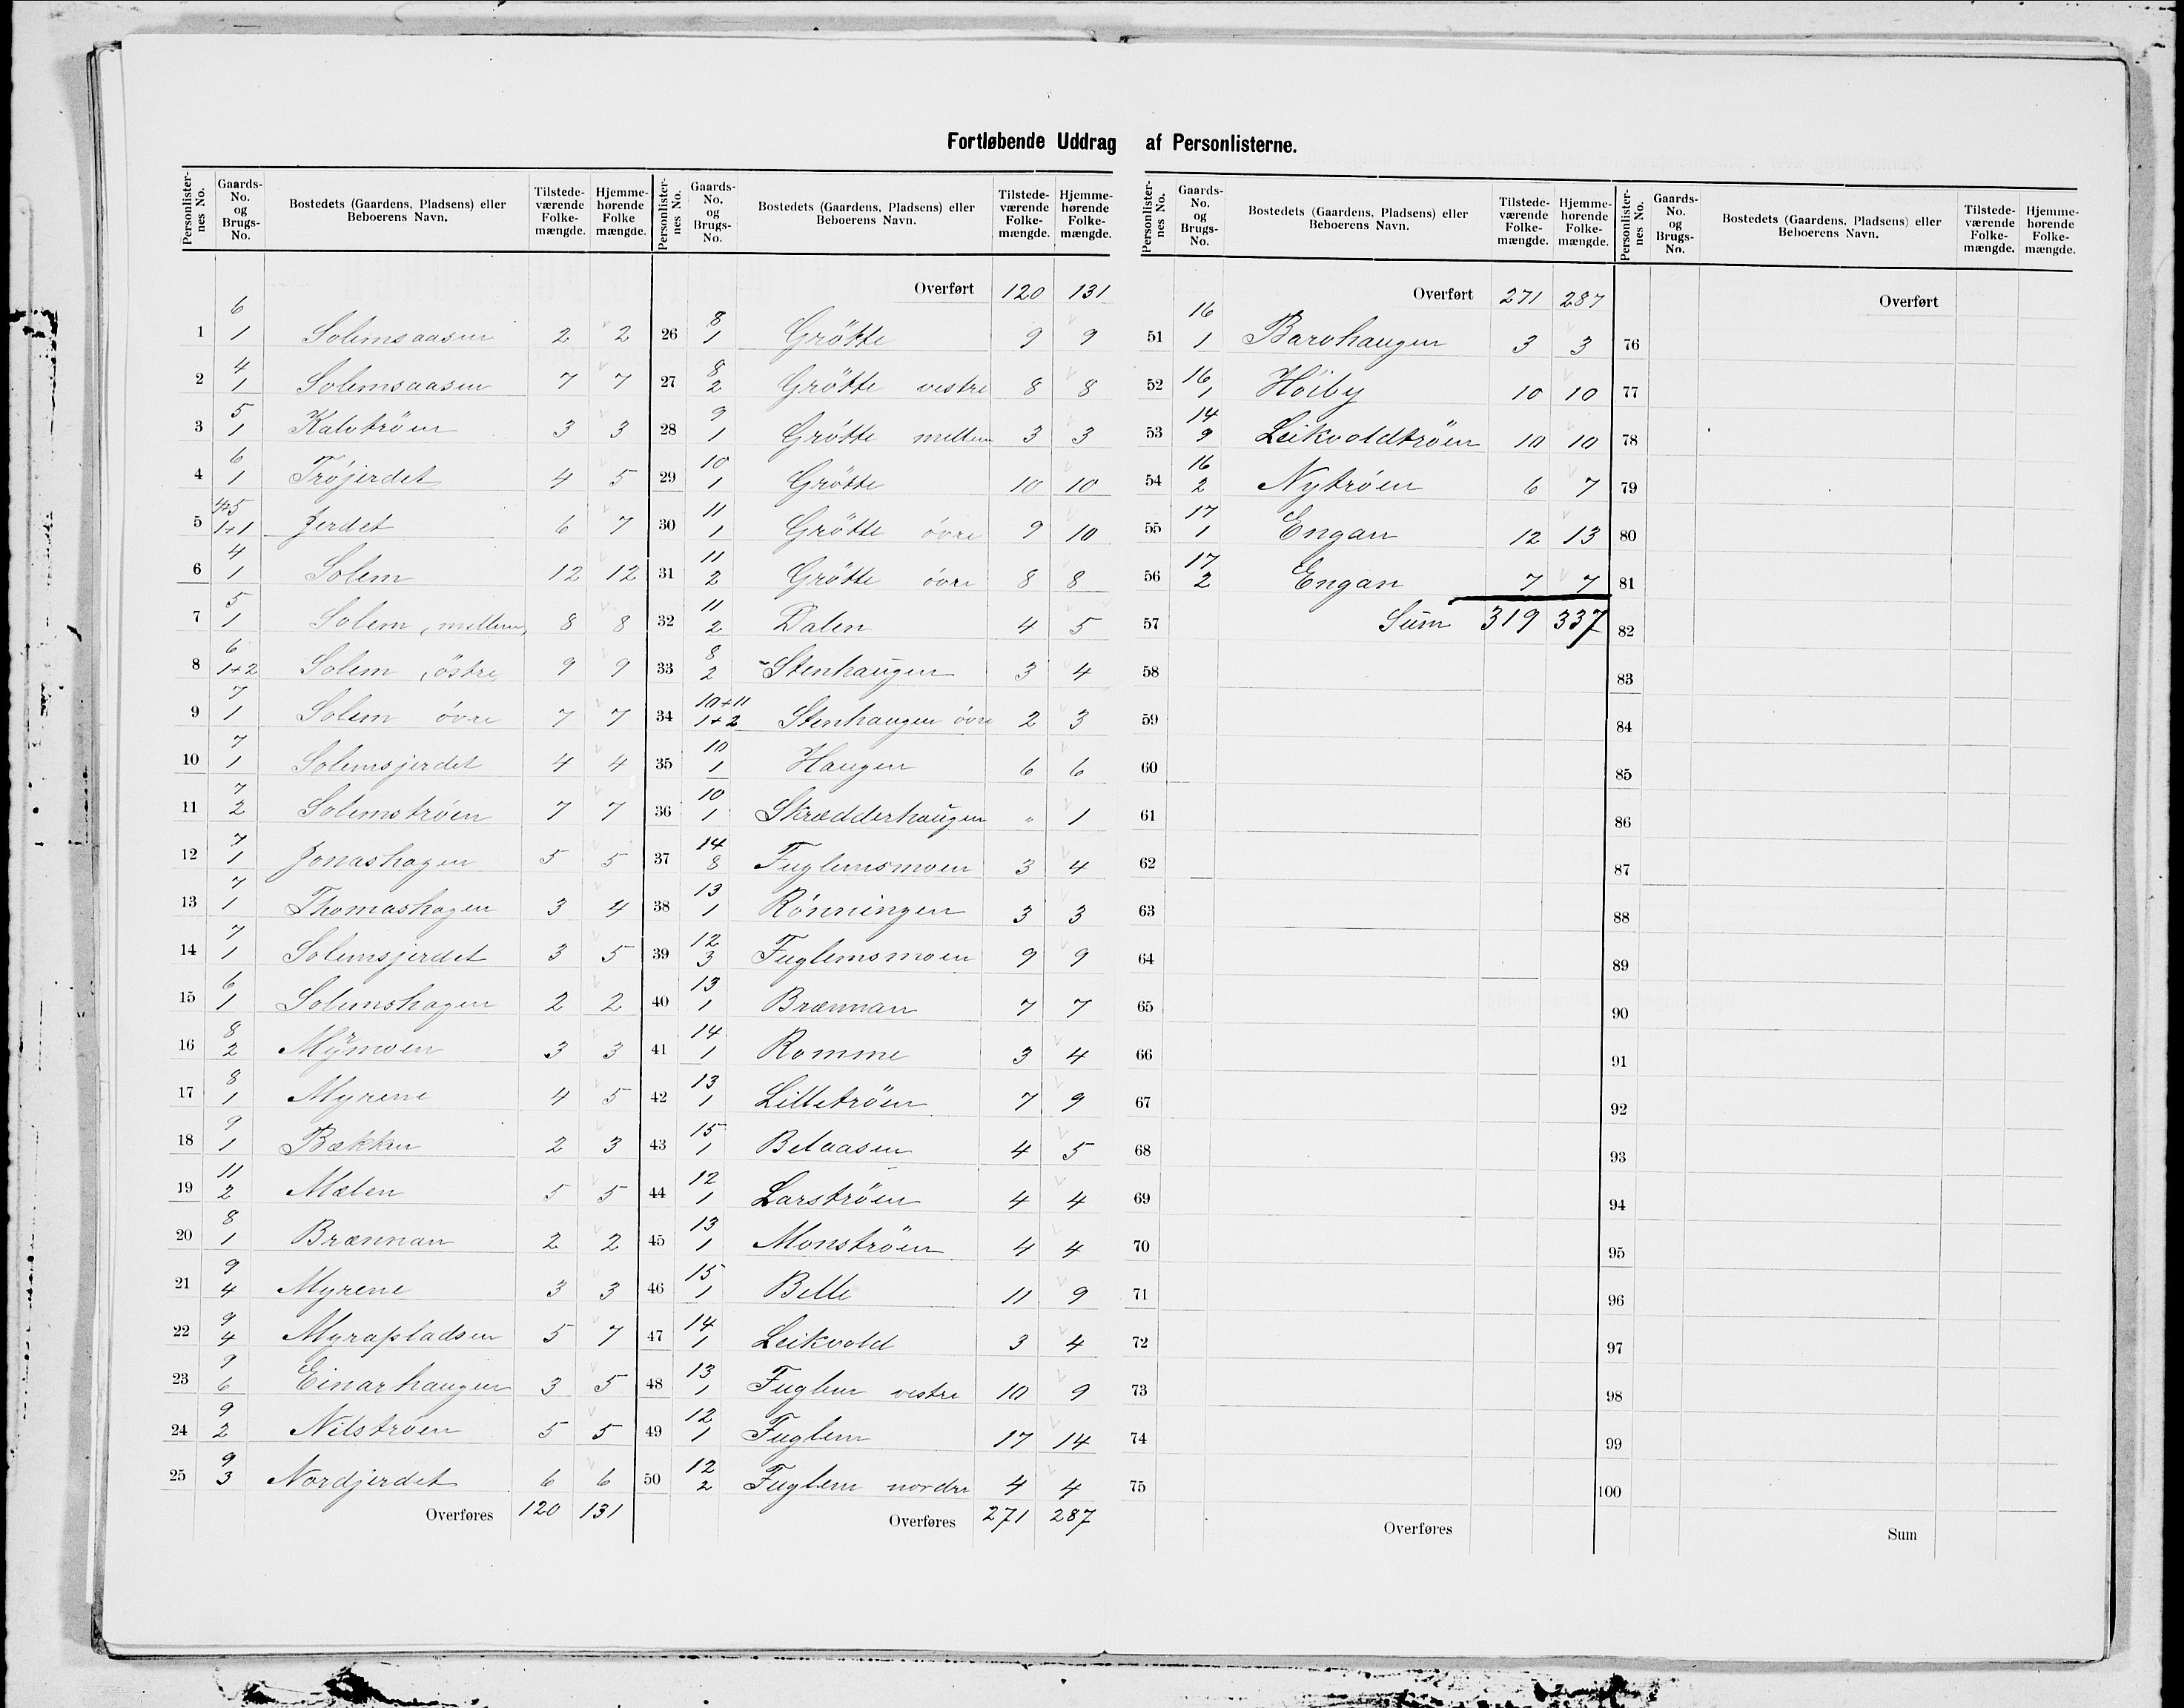 Fortløbende Uddrag af Personlisterne.
Personlisternes No. | Gaards-No. og Brugs-No. | Bostedets (Gaardens, Pladsens) eller Beboerens Navn. | Tilstedeværende Folkemængde. | Hjemmehørende Folke mængde.
1 | 6/1 | Solemsaasen | 2 | 2
2 | 4/1 | Solemsaasen | 7 | 7
3 | 5/1 | Kalvtröen | 3 | 3
4 | 6/1 | Tröjerdet | 4 | 5
5 | 4+5/1+1 | Jerdet | 6 | 7
6 | 4/1 | Solem | 12 | 12
7 | 5/1 | Solem, mellem, | 8 | 8
8 | 6/1+2 | Solem, östre | 9 | 9
9 | 7/1 | Solem övre | 7 | 7
10 | 7/1 | Solemsjerdet | 4 | 4
11 | 7/2 | Solemströen | 7 | 7
12 | 7/1 | Jonashagen | 5 | 5
13 | 7/1 | Thomashagen | 3 | 4
14 | 7/1 | Solemsjerdet | 3 | 5
15 | 6/1 | Solemshagen | 2 | 2
16 | 8/2 | Mÿmoen | 3 | 3
17 | 8/1 | Myrene | 4 | 5
18 | 9/1 | Bækken | 2 | 3
19 | 11/2 | Mælen | 5 | 5
20 | 8/1 | Brænnan | 2 | 2
21 | 9/4 | Myrene | 3 | 3
22 | 9/4 | Myrapladsen | 5 | 7
23 | 9/6 | Einarhaugen | 3 | 5
24 | 9/2 | Nilströen | 5 | 5
25 | 9/3 | Nordjerdet | 6 | 6
Overføres | 120 | 131
Personlisternes No. | Gaards-No. og Brugs-No. | Bostedets (Gaardens, Pladsens) eller Beboerens Navn. | Tilstedeværende Folkemængde. | Hjemmehørende Folkemængde.
Overført | 120 | 131
26 | 8/1 | Grötte | 9 | 9
27 | 8/2 | Grötte vestre | 8 | 8
28 | 9/1 | Grötte mellem | 3 | 3
29 | 10/1 | Grötte | 10 | 10
30 | 11/1 | Grötte övre | 9 | 10
31 | 11/2 | Grötte övre | 8 | 8
32 | 11/2 | Dalen | 4 | 5
33 | 8/2 | Stenhaugen | 3 | 4
34 | 10+11/1+2 | Stenhaugen övre | 2 | 3
35 | 10/1 | Haugen | 6 | 6
36 | 10/1 | Skrædderhaugen | " | 1
37 | 14/8 | Fuglemsmoen | 3 | 4
38 | 13/1 | Rönningen | 3 | 3
39 | 12/3 | Fuglemsmoen | 9 | 9
40 | 13/1 | Brænnan | 7 | 7
41 | 14/1 | Romme | 3 | 4
42 | 13/1 | Lilletröen | 7 | 9
43 | 15/1 | Belaasen | 4 | 5
44 | 12/1 | Larströen | 4 | 4
45 | 13/1 | Monströen | 4 | 4
46 | 15/1 | Belle | 11 | 9
47 | 14/1 | Leikvold | 3 | 4
48 | 13/1 | Fuglem vestre | 10 | 9
49 | 12/1 | Fuglem | 17 | 14
50 | 12/2 | Fuglem nordre | 4 | 4
Overføres | 271 | 287
Personlisternes No. | Gaards-No. og Brugs-No. | Bostedets (Gaardens, Pladsens) eller Beboerens Navn. | Tilstedeværende Folkemængde. | Hjemmehørende Folkemængde.
Overført | 271 | 287
51 | 16/1 | Barohaugen | 3 | 3
52 | 16/1 | Höiby | 10 | 10
53 | 14/9 | Leikvoldtröen | 10 | 10
54 | 16/2 | Nytröen | 6 | 7
55 | 17/1 | Engan | 12 | 13
56 | 17/2 | Engan | 7 | 7
57 | Sum | 319 | 337
58
59
60
61
62
63
64
65
66
67
68
69
70
71
72
73
74
75
Overføres
Personlisternes No. | Gaards-No. og Brugs-No. | Bostedets (Gaardens, Pladsens) eller Beboerens Navn. | Tilstedeværende Folkemængde. | Hjemmehørende Folkemængde.
Overført
76
77
78
79
80
81
82
83
84
85
86
87
88
89
90
91
92
93
94
95
96
97
98
99
100
Sum